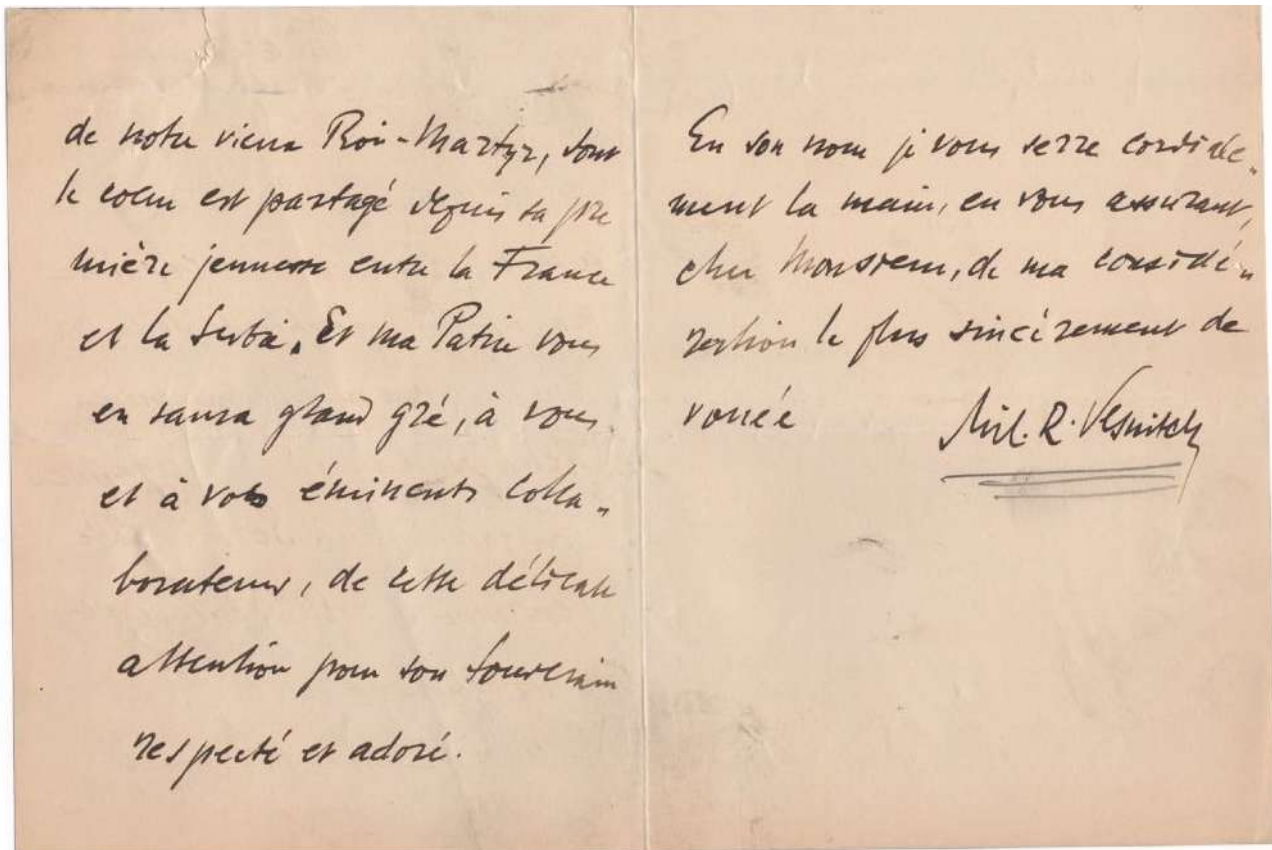 de notre vieux Roi-Martyr, dont
le coeur est partagé depuis sa pre
mière jeunesse entre la France
et la Serbie. Et ma Patrie vous
en saura grand gré, à vous
et à vos éminents colla-
borateurs, de cette délicate
attention pour son Souverain
respecté et adoré.
En son nom je vous serre cordiale-
ment la main, en vous assurant,
cher Monsieur, de ma considé-
ration la plus sincèrement de
vouée
Mil. R. Vesnitch